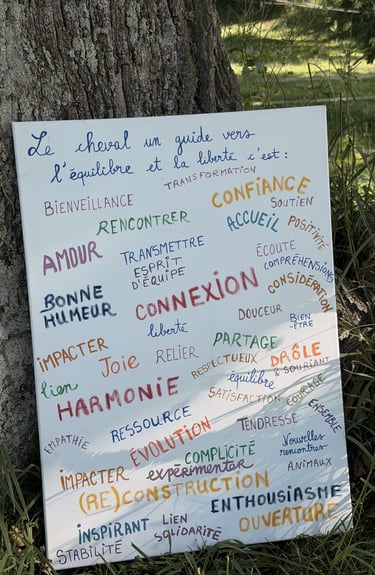 Le cheval un guide vers
l'équilibre et la liberté c'est :
TRANSFORMATION
BIENVEILLANCE
CONFIANCE
SOUTIEN
RENCONTRER
ACCUEIL
POSITIVITÉ
AMOUR
TRANSMETTRE
ESPRIT
D'ÉQUIPE
ÉCOUTE
COMPRÉHENSIONS
BONNE
HUMEUR
CONNEXION
CONSIDÉRATION
liberté
DOUCEUR
BIEN
-ÊTRE
IMPACTER
Joie
RELIER
PARTAGE
RESPECTUEUX
DRÔLE
& SOURIANT
lien
HARMONIE
équilibre
SATISFACTION
COURAGE
RESSOURCE
TENDRESSE
ENSEMBLE
EMPATHIE
ÉVOLUTION
COMPLICITÉ
Nouvelles
rencontres
IMPACTER
expérimenter
ANIMAUX
(RE)CONSTRUCTION
ENTHOUSIASME
INSPIRANT
LIEN
SOLIDARITÉ
OUVERTURE
STABILITÉ